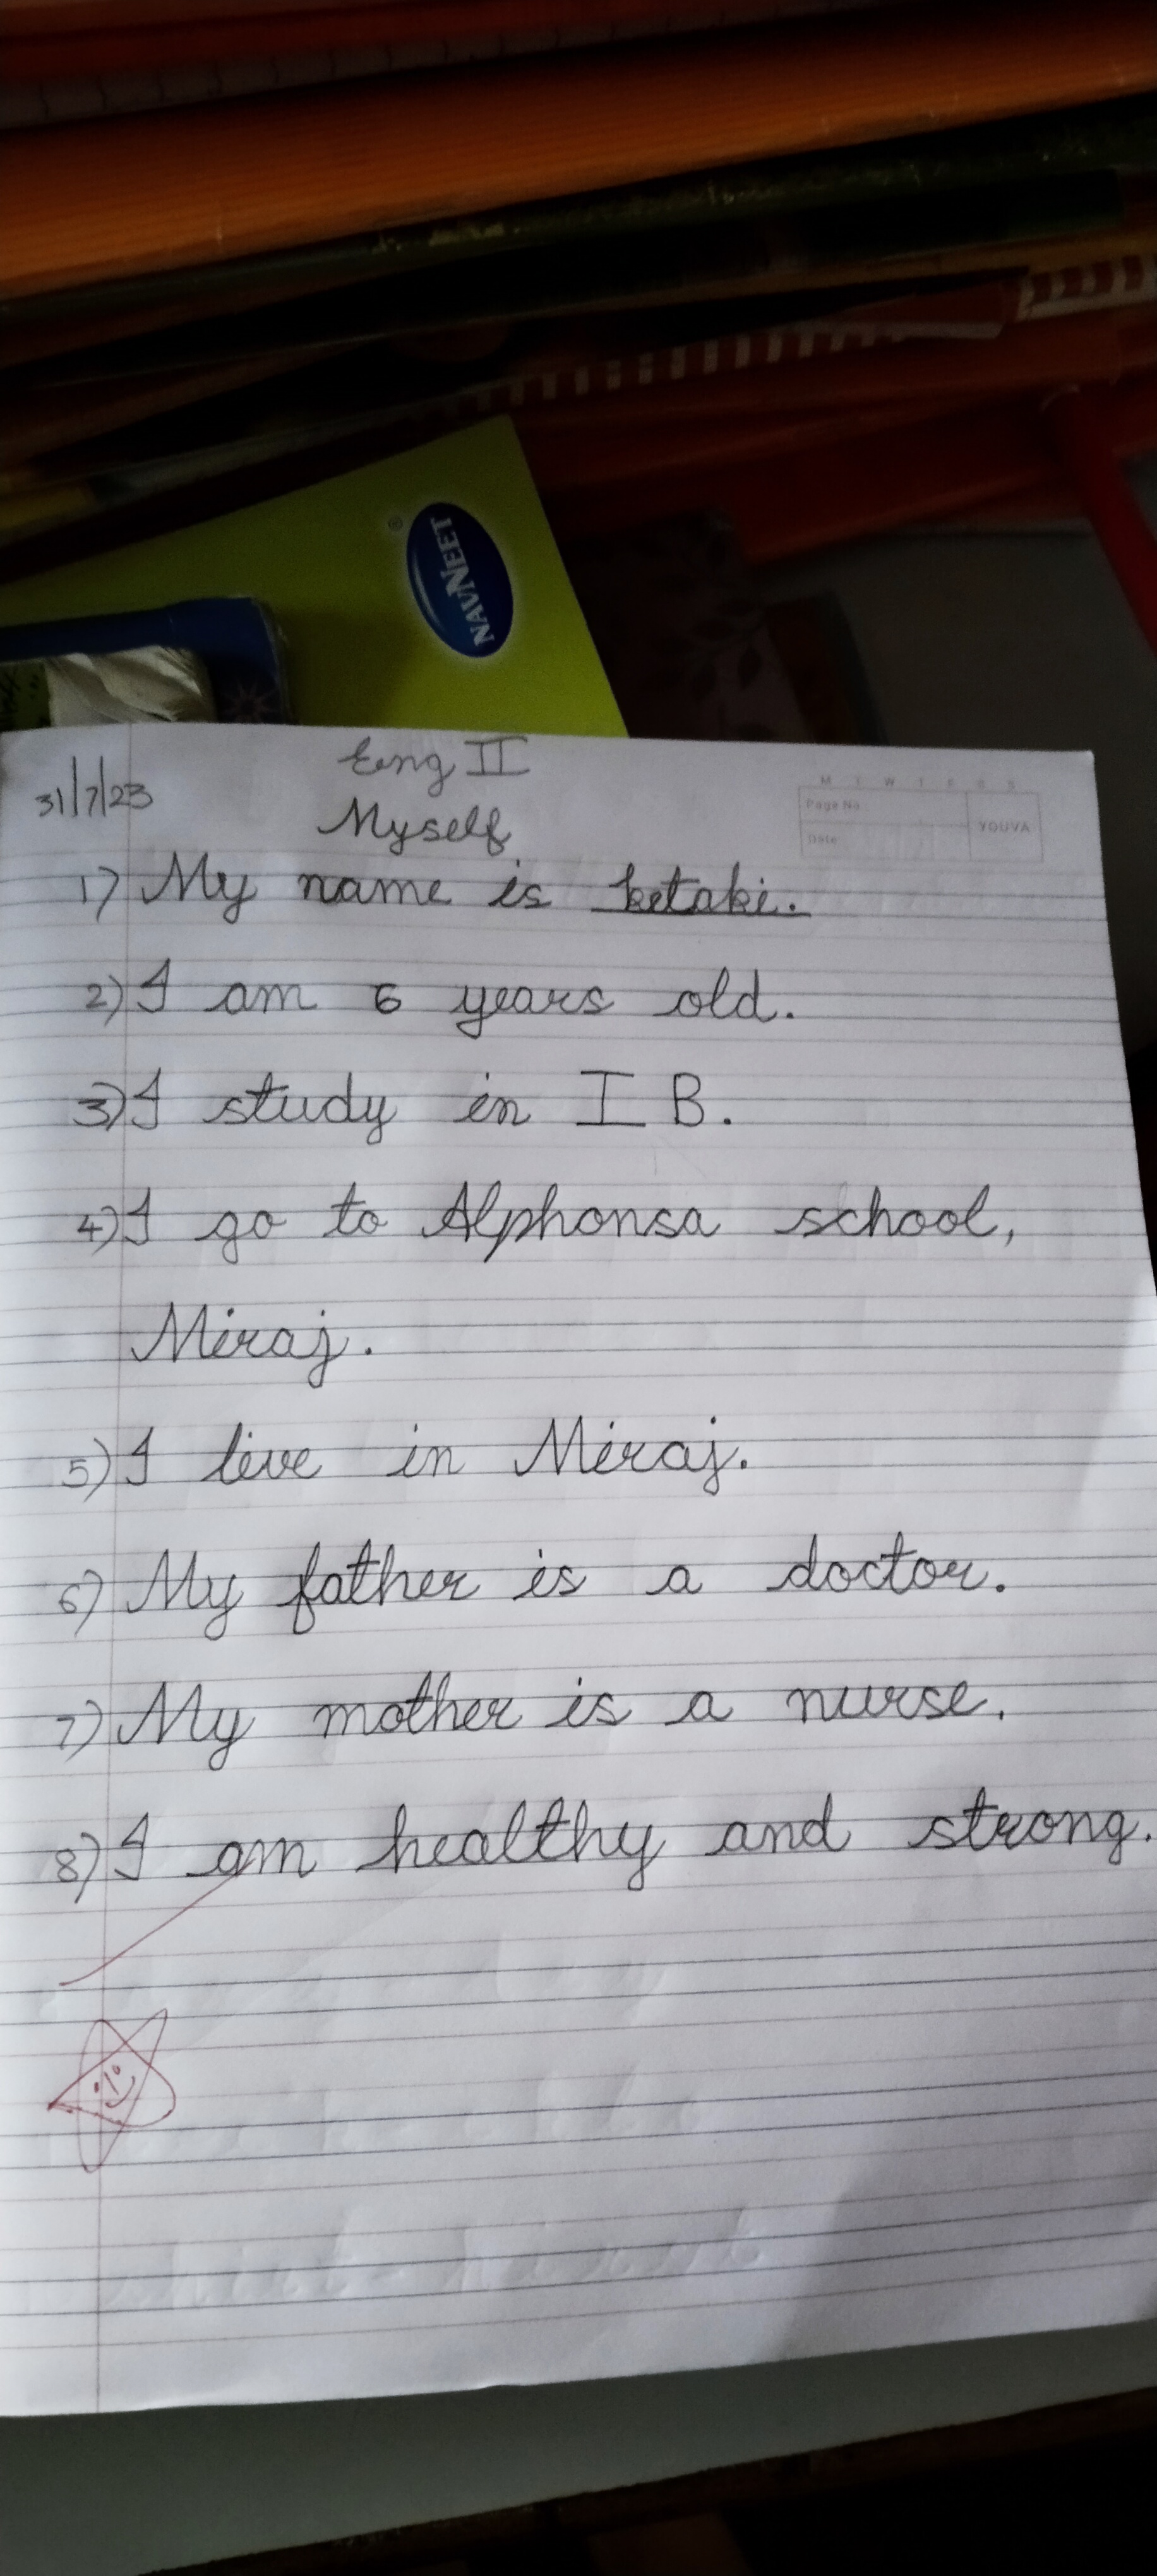 NAVNEET
®
Eng II
31/7/23
Myself
M T W T F S S
Page No.
Date:
YOUVA
1) My name is ketaki.
2) I am 6 years old.
3) I study in I B.
4) I go to Alphonsa school,
Miraj.
5) I live in Miraj.
6) My father is a doctor.
7) My mother is a nurse.
8) I am healthy and strong.